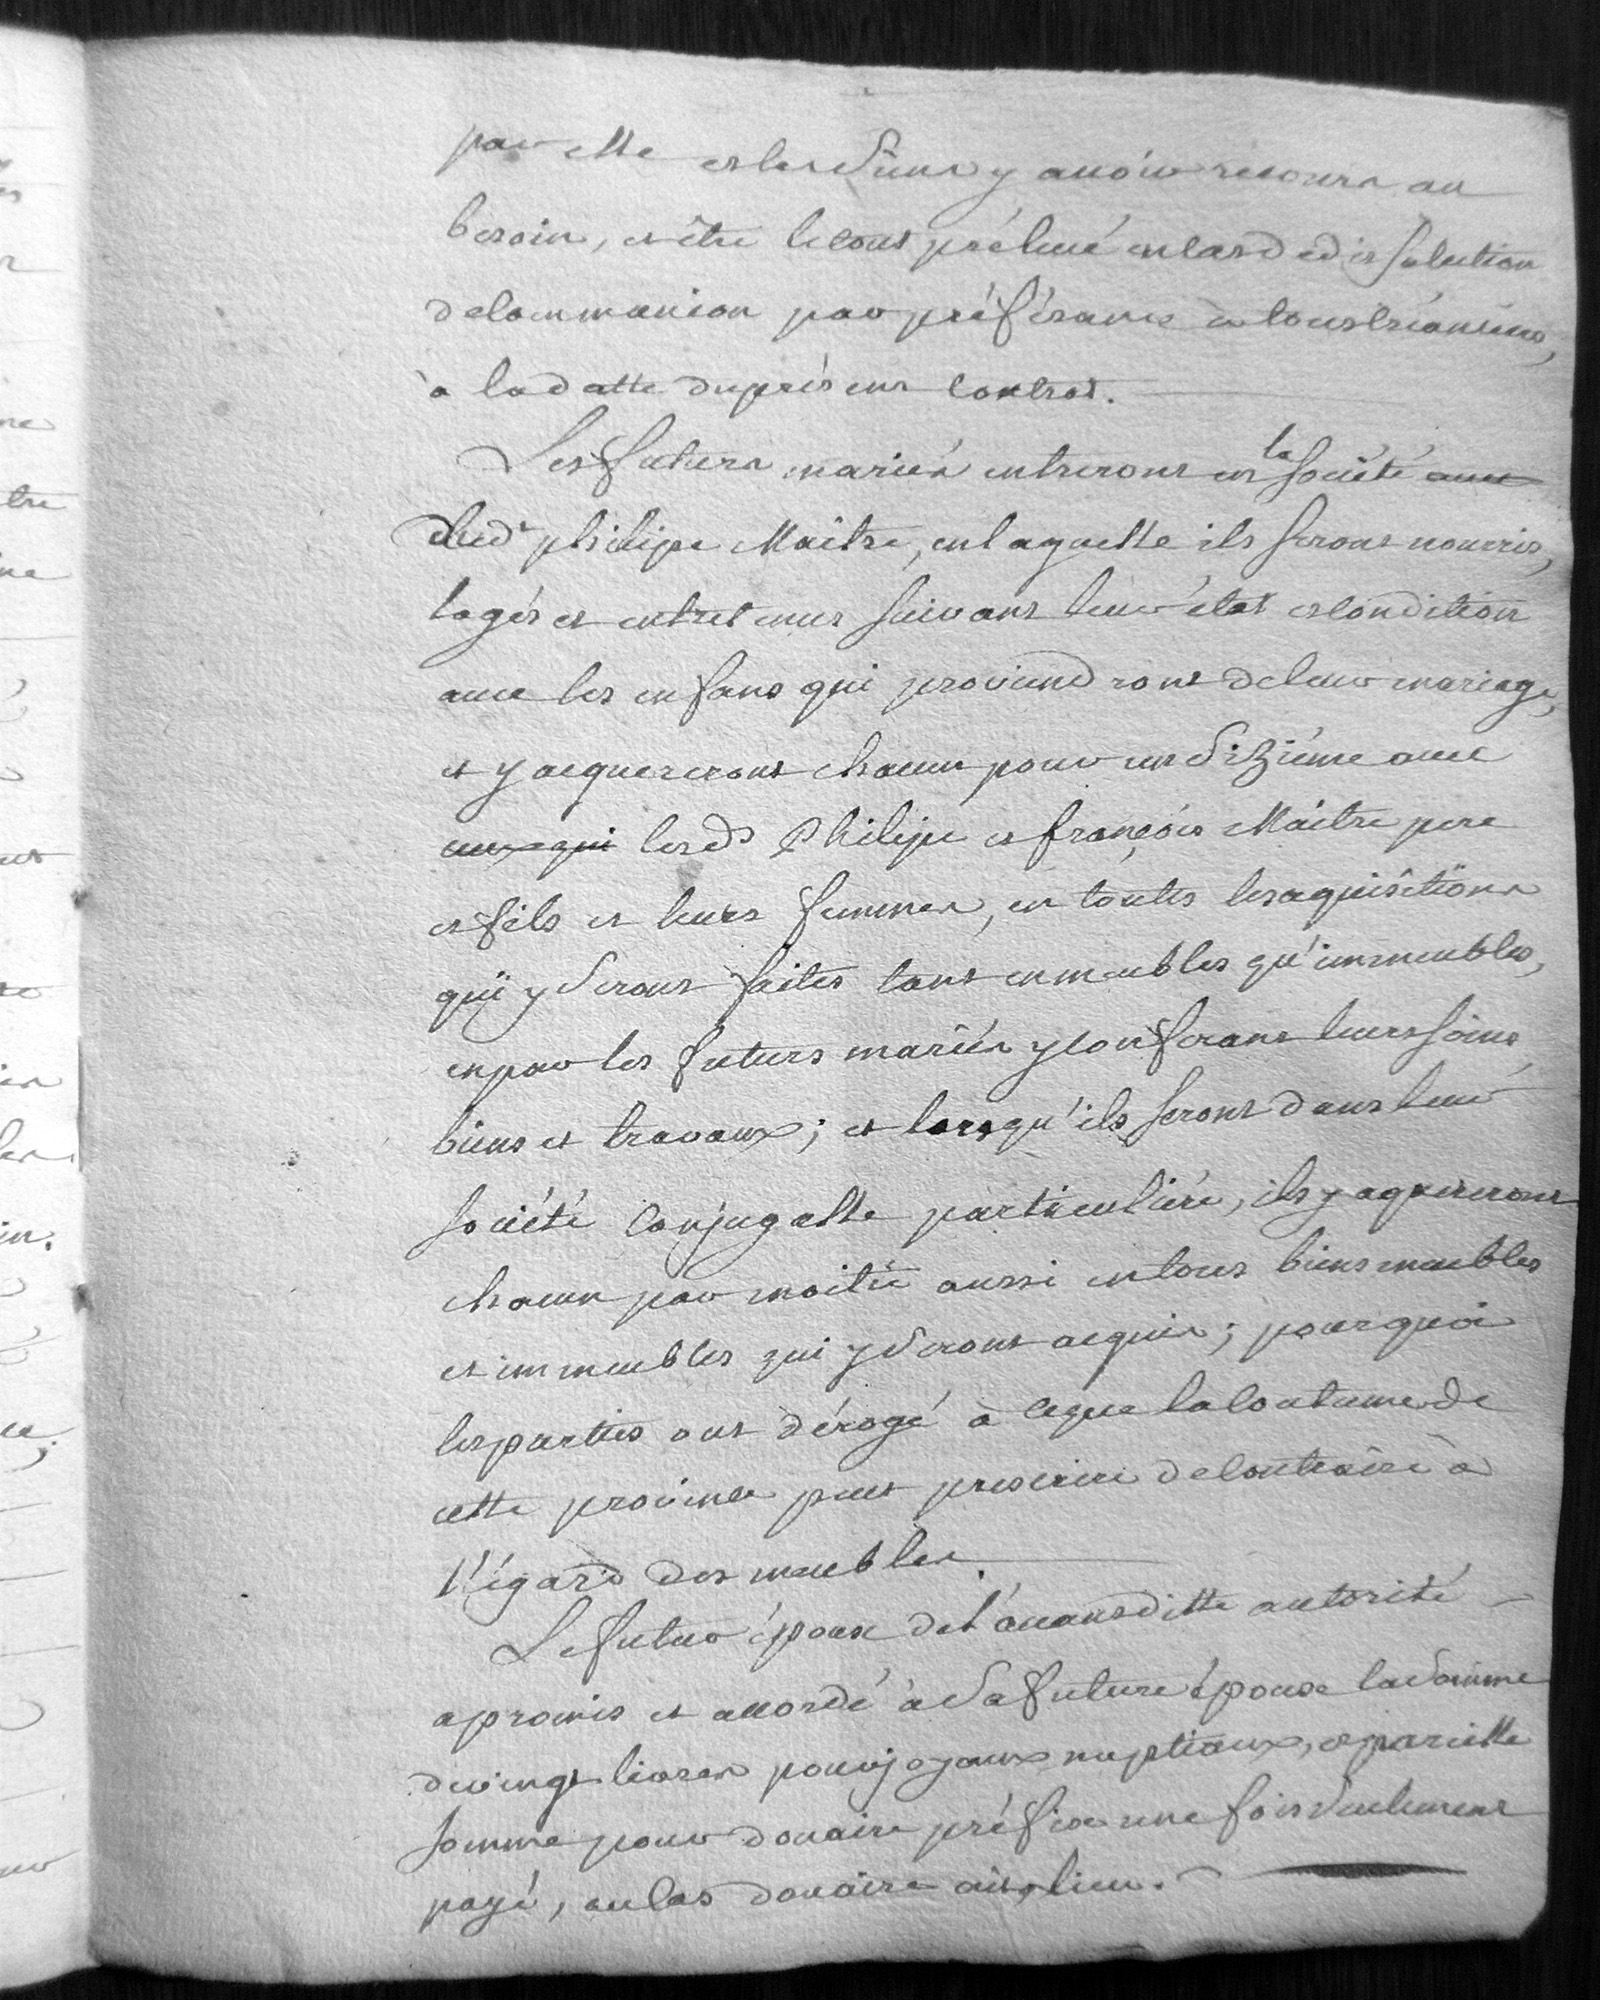 par elle et les siens y avoir recours au
besoin, et être le tout prélevé en cas de dissolution
de communion par préférance à tous créanciers,
à la datte du présent contrat.
Les futurs mariés entreront en la société avec
dud.t philipe Maitre, en laquelle ils seront nourris,
logés et entretenus suivant leur état et condition
avec les enfans qui proviendront de leur mariage,
et y acquereront chacun pour un dizième avec
ceux qui lesd.s Philipe et françois Maitre pere
et fils et leurs femmes, en toutes les aquisitions
qui y seront faites tant en meubles qu'immeubles,
en par les futurs mariés y conferant leurs soins,
biens et travaux; et lorsqu'ils seront dans leur
société conjugalle particulière, ils y aquereront
chacun par moitié aussi en tous biens meubles
et immeubles qui y seront acquis; pourquoi
les parties ont dérogé à ce que la coutume de
cette province peut prescrire de contraire à
l'égard des meubles.
Le futur époux de l'avantditte autorité
a promis et accordé à sa future épouse la somme
de vingt livres pour joyaux nuptiaux, et pareille
somme pour douaire préfix une fois seulement
payé, au cas douaire ait lieu.